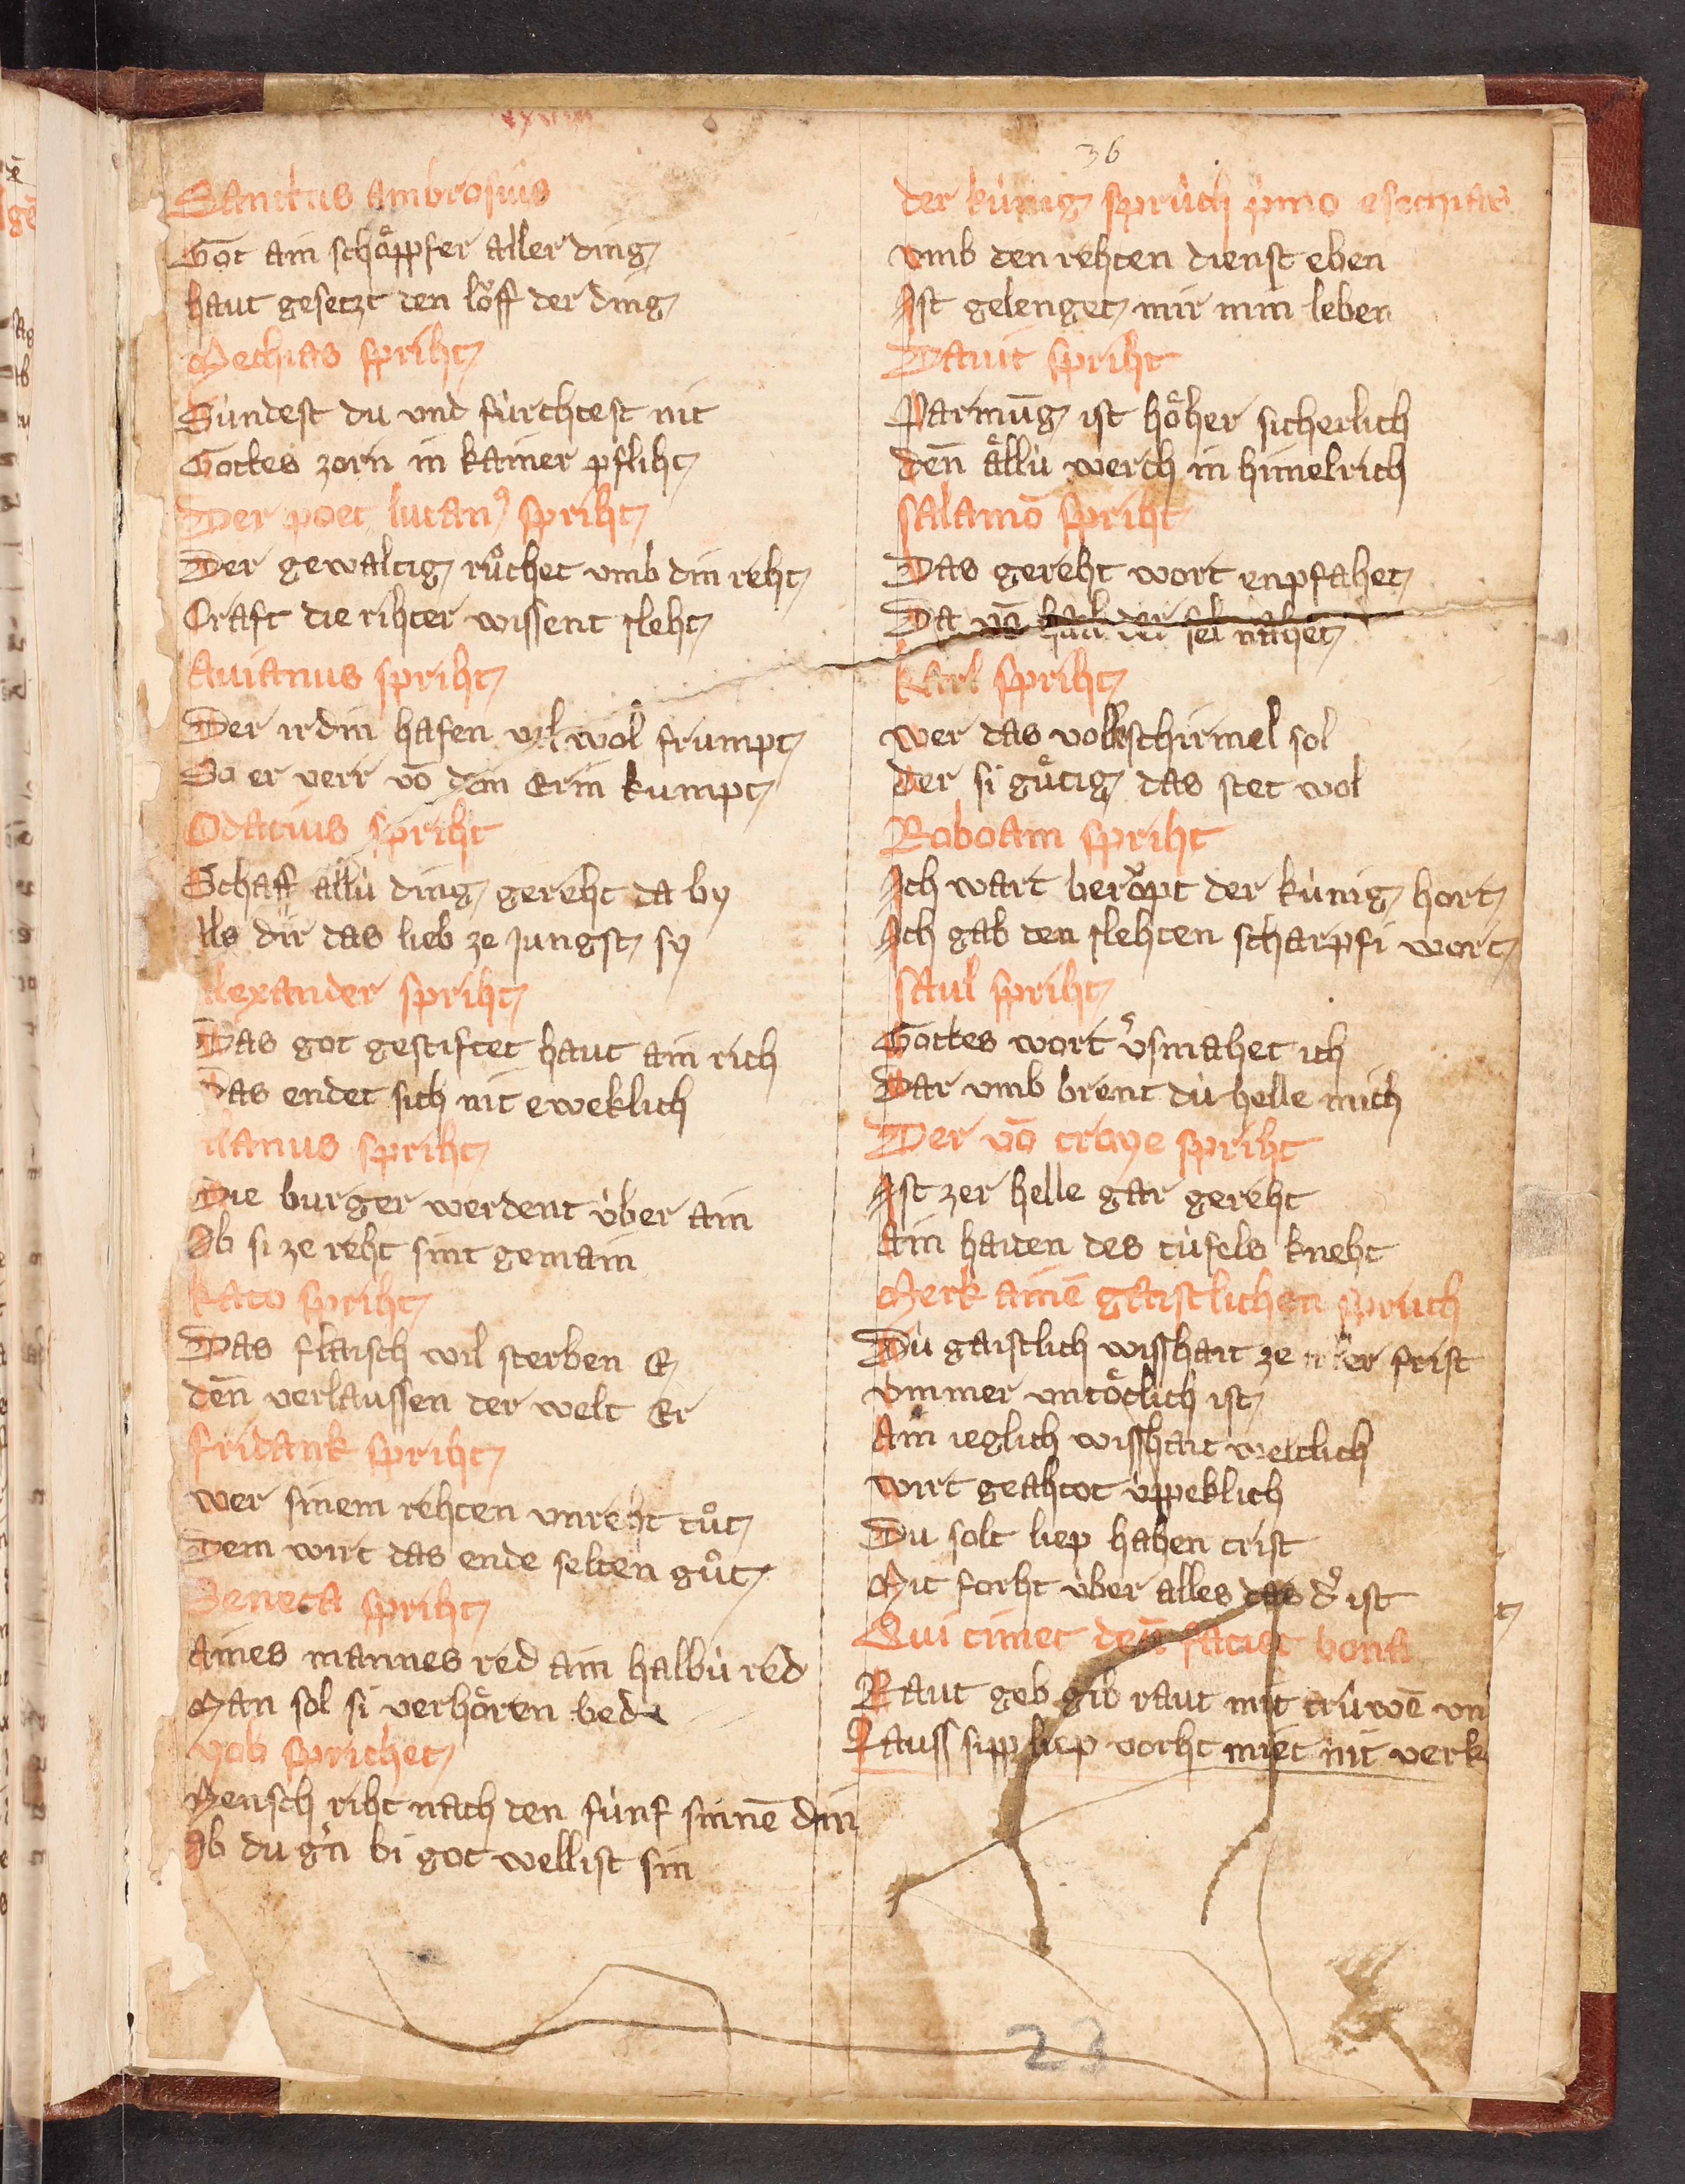 xxviiii
36
Sanctus ambrosius
Got ain schöppfer aller ding
haut gesetzt den löff der ding
Mechias spriht
Sündest du vnd fürchtest nit
Gottes zorn in kainer pfliht
Der poet lucanꝰ spriht
Der gewaltig růchet vmb din reht
Craft die rihter wissent sleht
Auianus spriht
Der ir din hafen vil wol frumpt
So er verr võ dem Erin kumpt
Odatius spriht
Schaff allü ding gereht da by
als dir das lieb ze jungst sy
Alexander spriht
Das got gestiftet haut ain rich
Das endet sich nit eweklich
lanus spriht
Die burger werdent über ain
Ob si ze reht sint gemain
kato spriht
Das flaisch wil sterben E
deñ verlaussen der welt Er
fridank spriht
wer sinem rehten vnreht tůt
Dem wirt das ende selten gůt
Seneca spriht
aines mannes red ain halbü red
Man sol si verhören bede
yob sprichet
Mensch riht nach den fünf sinnē din
Ob du gern bi got wellist sin
der künig sprüch p̓mo esechias
vmb den rehten dienst eben
Ist gelenget mir min leben
Dauit spriht
Parmūg ist höher sicherlich
deñ ällü werch in himelrich
salamō spriht
Das gereht wort enpfahet
Da võ hail der sel nahet
karl spriht
wer das volkschirmel sol
der si gütig das stet wol
Roboam spriht
Ich wart beröpt der künig hort
Ich gab den slehten scharpfi wort
saul spriht
Gottes wort v̓smahet ich
Dar vmb brent dü helle mich
Der võ troye spriht
Ist zer helle gar gereht
Ain haiden des tüfels kneht
Merk ainē gaistlichen spruch
Dü gaistlich wisshait ze aller frist
vmmer vntötlich ist
Ain ieglich wisshait weltlich
wirt geahtot üppeklich
Du solt liep haben crist
Mit forht über alles das d̓ ist
Qui timet deū faciet bona
Raut geb gib raut mit trüwē vn
Lauss sipp liep vorht miet nit verk
23